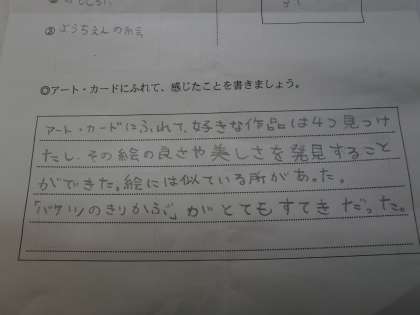 ② ようちえんの絵
◎アート・カードにふれて、感じたことを書きましょう。
アート・カードにふれて、好きな作品は4つ見つけ
たし、その絵の良さや美しさを発見すること
ができた。絵には似ている所があった。
「バケツのきりかぶ」がとてもすてきだった。